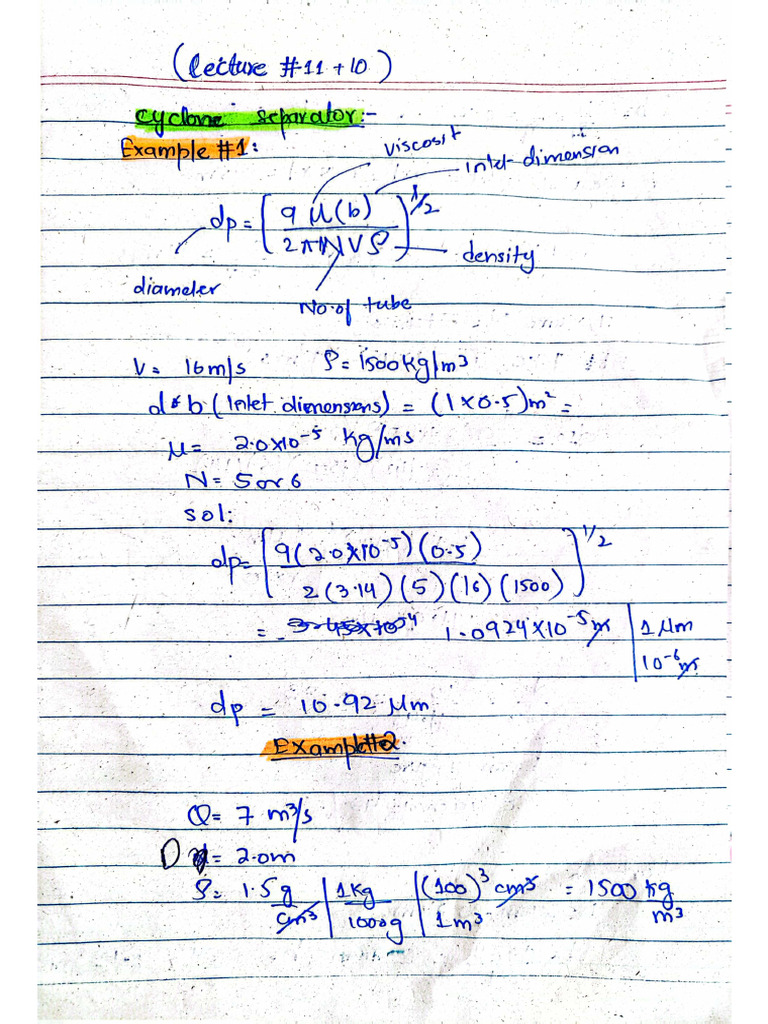 (Lecture #11 + 10)
Cyclone separator:-
Example #1:
viscosit
inlet dimension
dp = [9 μ(b) / 2πNVρ]^1/2
density
diameter
No. of tube
V = 16m/s ρ = 1500kg/m3
d*b (Inlet dimensions) = (1 x 0.5)m² =
μ = 2.0x10⁻⁵ kg/ms
N = 5 or 6
Sol:
dp = [9(2.0x10⁻⁵)(0.5) / 2(3.14)(5)(16)(1500)]^1/2
= 1.0924x10⁻⁵m | 1 μm / 10⁻⁶m
dp = 10.92 μm
Example#2.
Q = 7 m³/s
D = 2.0m
ρ = 1.5g/cm³ | 1kg/1000g | (100)³cm³/1m³ = 1500 kg/m³